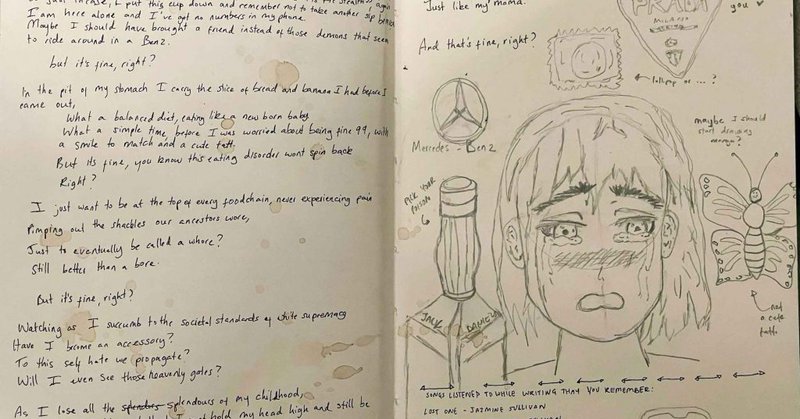 just incase, I put this cup down and remember not to take another sip
I am here alone and I've got no numbers in my phone.
Maybe I should have brought a friend instead of those demons that seem
to ride around in a Benz.
but it's fine, right?
In the pit of my stomach I carry the slice of bread and banana I had before I
came out,
What a balanced diet, eating like a new born baby
What a simple time, before I was worried about being fine 99, with
a smile to match and a cute fatt.
But its fine, you know this eating disorder wont spin back
Right?
I just want to be at the top of every foodchain, never experiencing pain
Pimping out the shackles our ancestors wore,
Just to eventually be called a whore?
Still better than a bore.
But it's fine, right?
Watching as I succumb to the societal standards of white supremacy
Have I become an accessory?
To this self hate we propagate?
Will I even see those heavenly gates?
As I lose all the splendours of my childhood,
hold my head high and still be
Just like my mama.
And that's fine, right?
PRADA
MILANO
you
lollipop or ... ?
Mercedes - Benz
maybe I should
start drawing
manga?
PICK YOUR
POISON
JACK
DANIELS
Not
a cute
fatt.
SONGS LISTENED TO WHILE WRITING THAT YOU REMEMBER:
LOST ONE - JAZMINE SULLIVAN